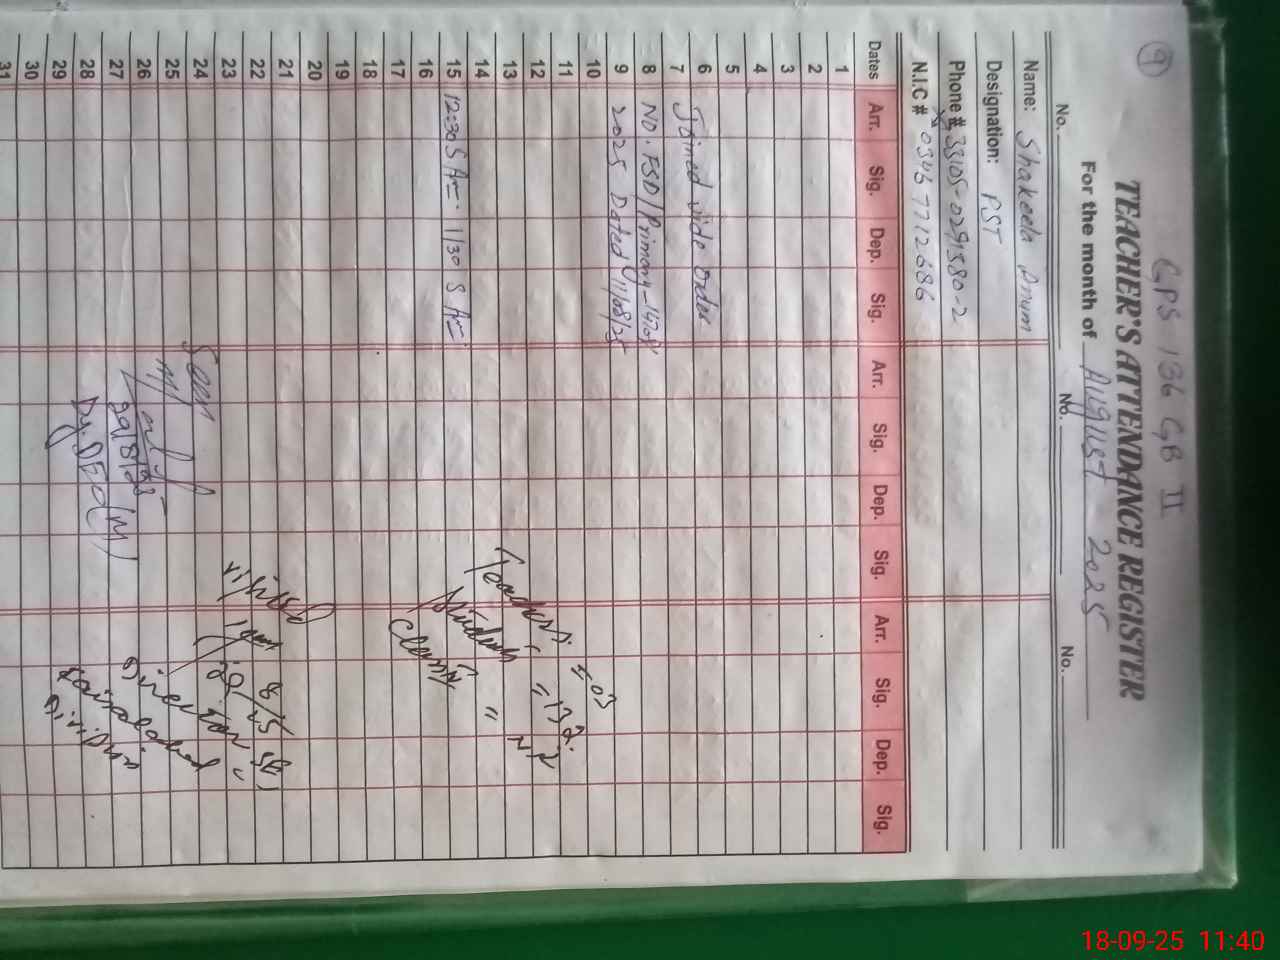 9
GPS 136 GB II
TEACHER'S ATTENDANCE REGISTER
For the month of August 2025
No. No. No.
Name: Shakeela Anum
Designation: PST
Phone # 33105-0291580-2
N.I.C # 03467712686
Dates Arr. Sig. Dep. Sig. Arr. Sig. Dep. Sig. Arr. Sig. Dep. Sig.
1
2
3
4
5
6 Joined vide order
7
8 NO. FSD/Primary-
9 2025 Dated 11/08/25
10
11
12
13
14
15 12:30 1/30
16
17
18
19
20
21
22
23
24
25
26
27
28
29
30
31
Teachers = 03
Students = 132
Class IV " =
Seen
29/8/25
Dy. DEO (M)
visited
Director
Faisalabad
Division
18-09-25 11:40